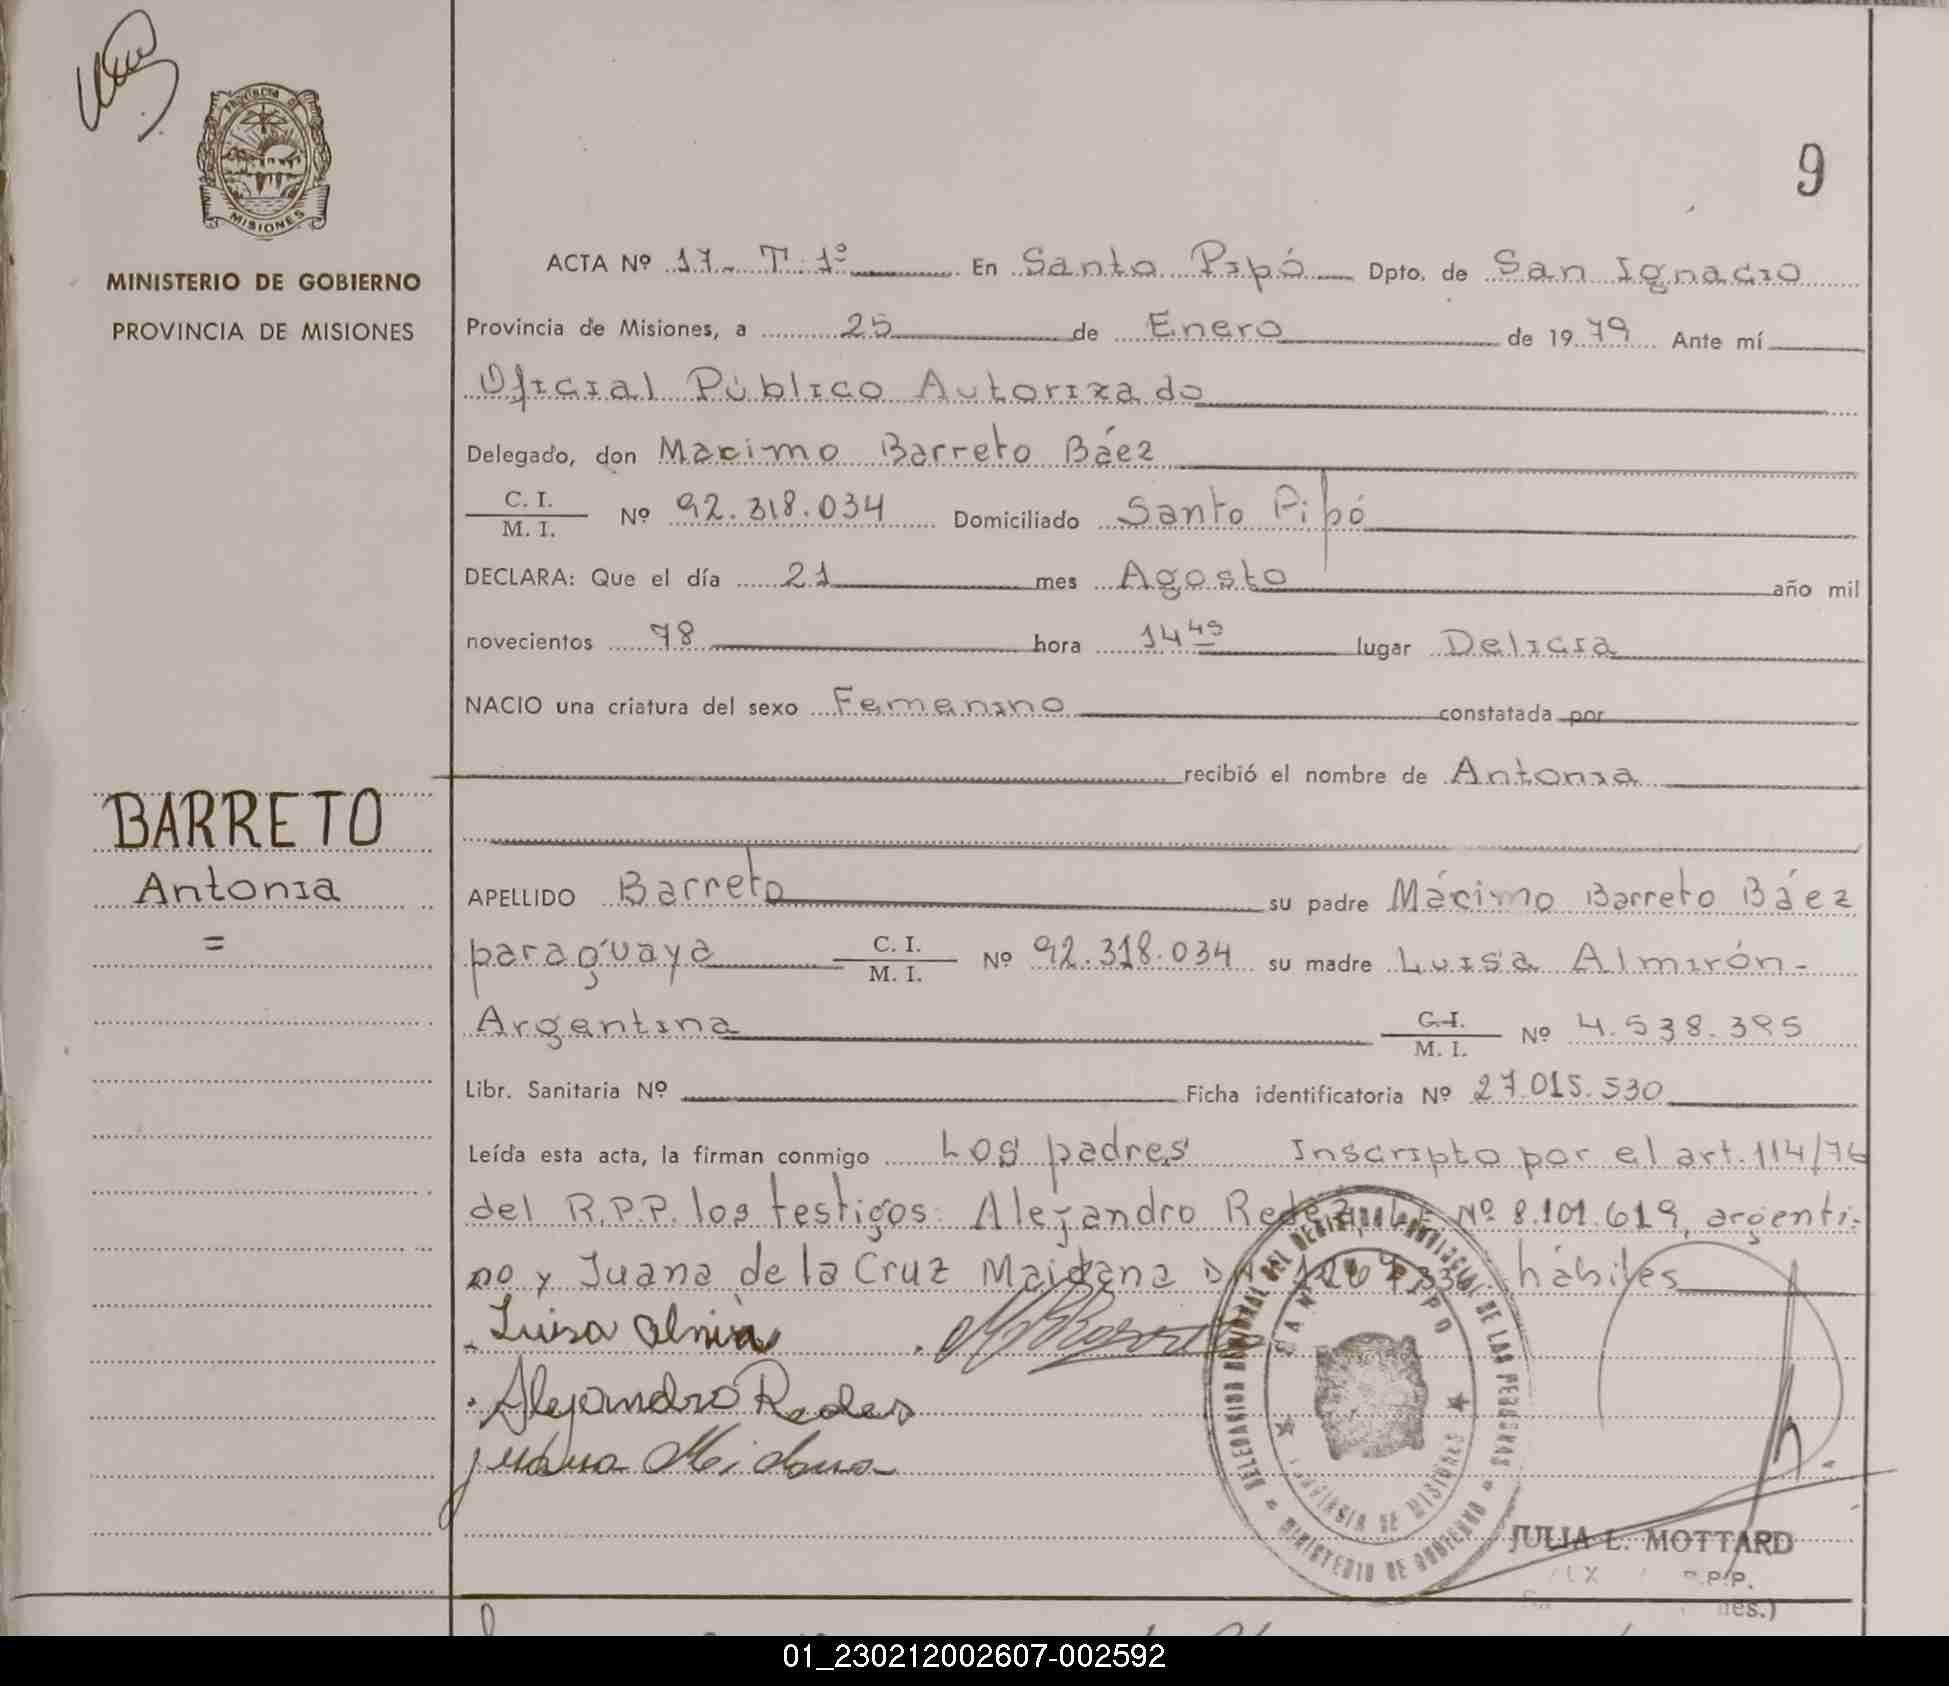 PROVINCIA DE
MISIONES
MINISTERIO DE GOBIERNO
PROVINCIA DE MISIONES
BARRETO
Antonia
=
9
ACTA Nº 17- T. 1º En Santo Pipó Dpto. de San Ignacio
Provincia de Misiones, a 25 de Enero de 1979 Ante mí
Oficial Público Autorizado
Delegado, don Macimo Barreto Báez
C. I. / M. I. Nº 92.318.034 Domiciliado Santo Pipó
DECLARA: Que el día 21 mes Agosto año mil
novecientos 78 hora 14 45 lugar Delicia
NACIO una criatura del sexo Femenino constatada por
recibió el nombre de Antonia
APELLIDO Barreto su padre Mácimo Barreto Báez
paraguaya C. I. / M. I. Nº 92.318.034 su madre Luisa Almirón-
Argentina C. I. / M. I. Nº 4.538.395
Libr. Sanitaria Nº Ficha identificatoria Nº 27.015.530
Leída esta acta, la firman conmigo Los padres Inscripto por el art. 114/76
del R.P.P. los testigos: Alejandro Nº 8.101.619, argenti-
no y Juana de la Cruz Maidana hábiles
Luisa
Alejandro Redes
DELEGACION DEL REGISTRO PROVINCIAL DE LAS PERSONAS
SANTO PIPO
PROVINCIA DE MISIONES
MINISTERIO DE GOBIERNO
JULIA L. MOTTARD
01_230212002607-002592